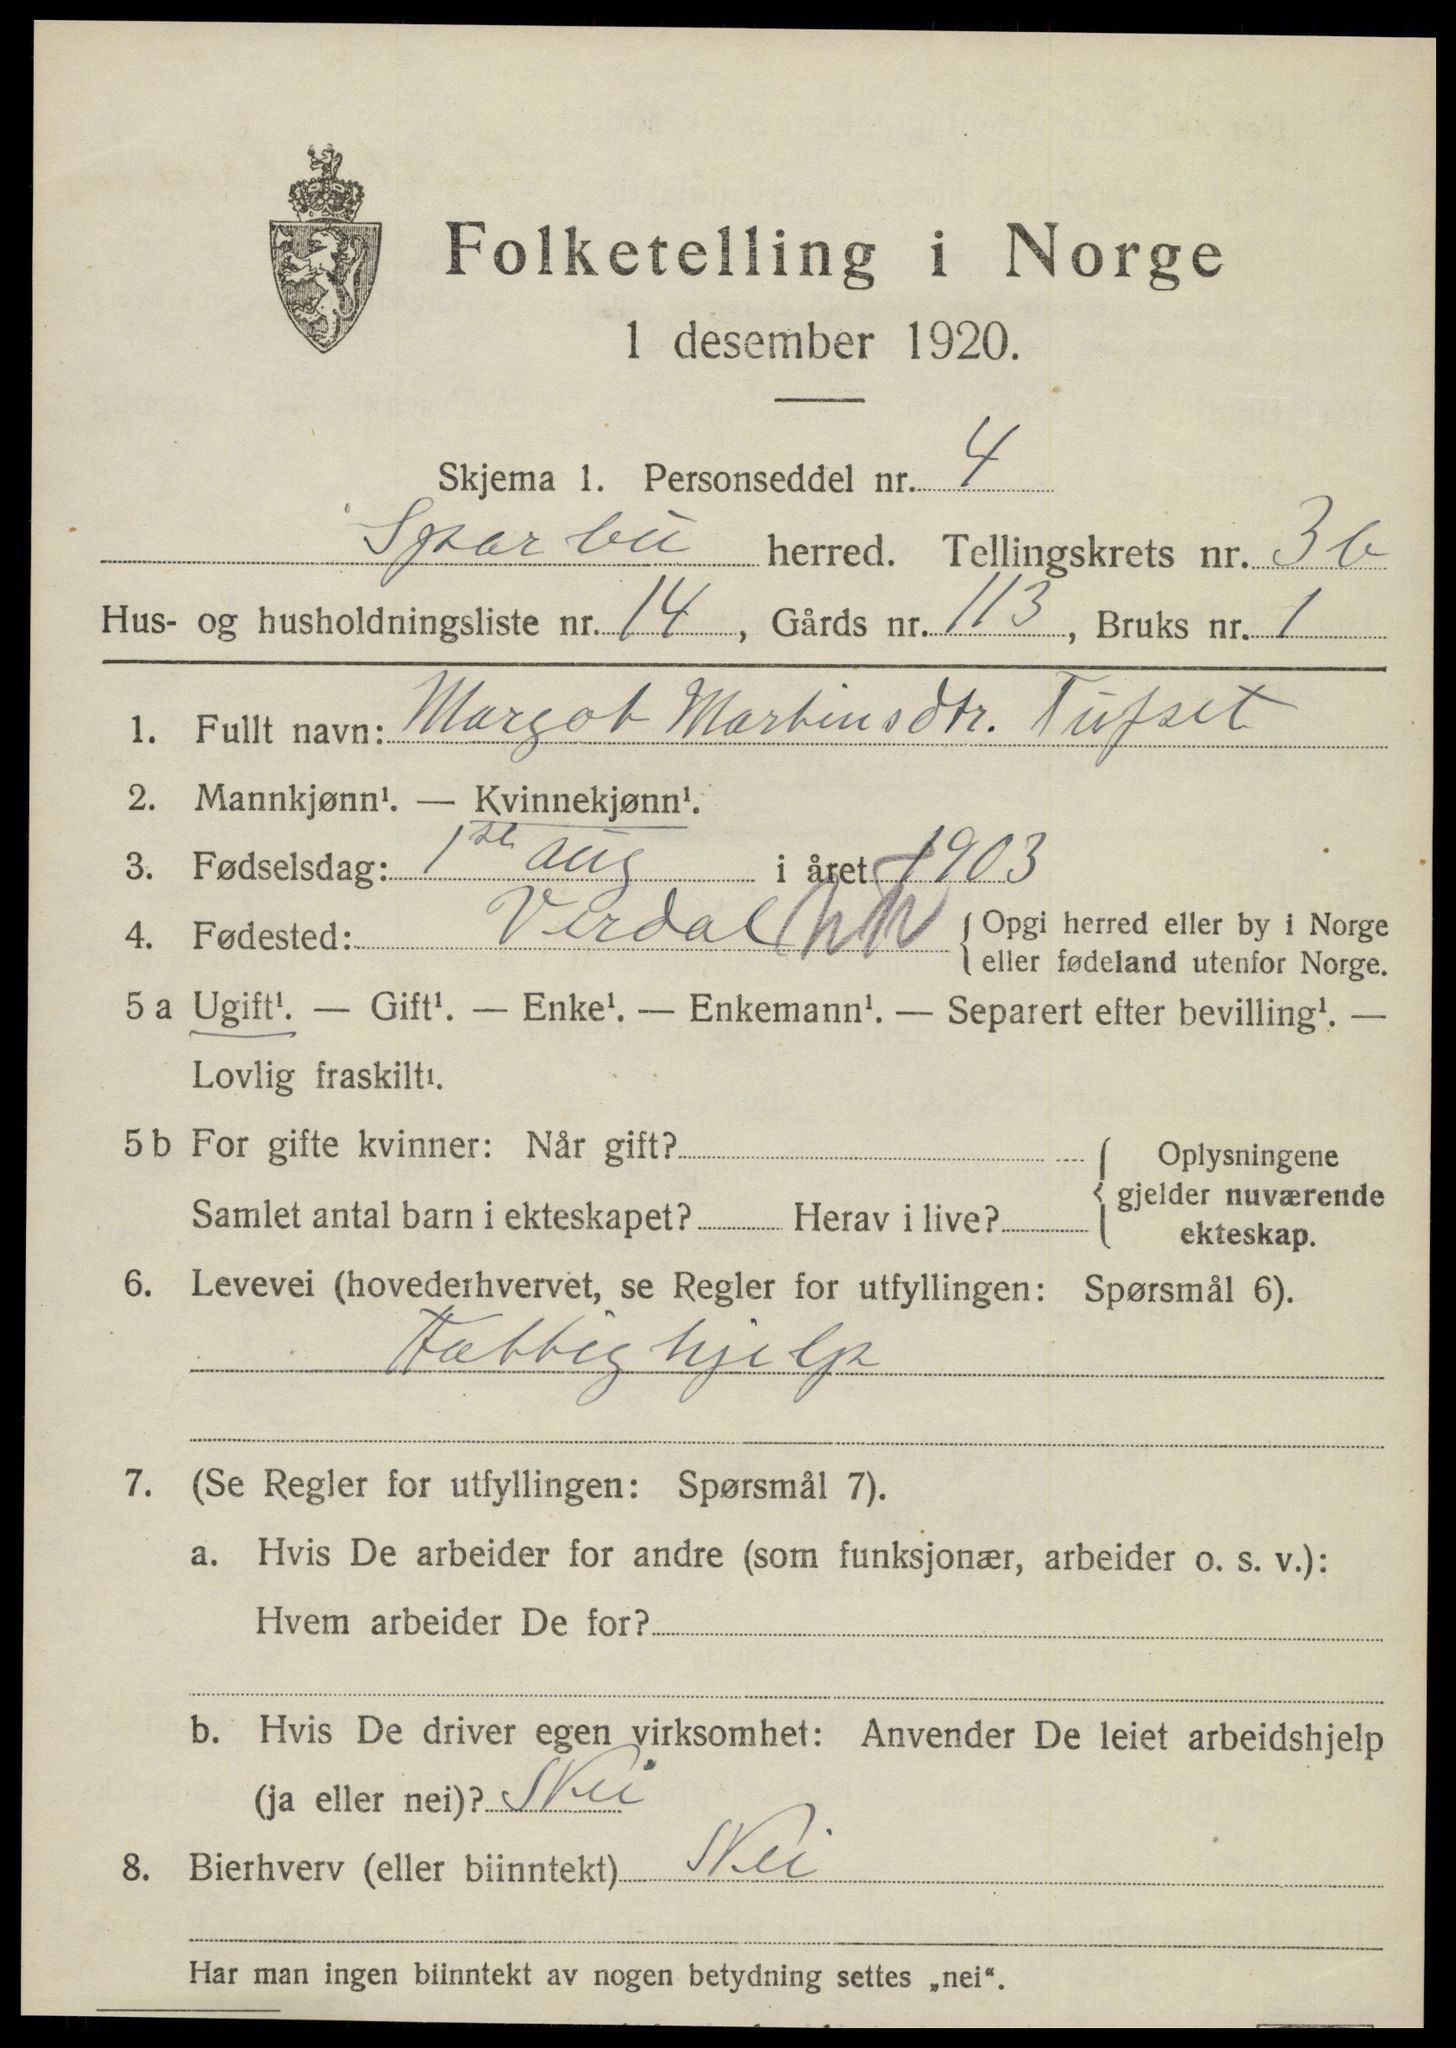 Folketelling i Norge
1 desember 1920.
Skjema 1. Personseddel nr. 4
Sparbu herred. Tellingskrets nr. 3b
Hus- og husholdningsliste nr. 14, Gårds nr. 113, Bruks nr. 1
1. Fullt navn: Margot Martinsdtr. Tufset
2. Mannkjønn¹. — Kvinnekjønn¹.
3. Fødselsdag: 1ste aug i året 1903
4. Fødested: Verdal { Opgi herred eller by i Norge
eller fødeland utenfor Norge.
5 a Ugift¹. — Gift¹. — Enke¹. — Enkemann¹. — Separert efter bevilling¹. —
Lovlig fraskilt¹.
5 b For gifte kvinner: Når gift? { Oplysningene
gjelder nuværende
Samlet antal barn i ekteskapet? Herav i live? ekteskap.
6. Levevei (hovederhvervet, se Regler for utfyllingen: Spørsmål 6).
Fattighjelp
7. (Se Regler for utfyllingen: Spørsmål 7).
a. Hvis De arbeider for andre (som funksjonær, arbeider o. s. v.):
Hvem arbeider De for?
b. Hvis De driver egen virksomhet: Anvender De leiet arbeidshjelp
(ja eller nei)? Nei
8. Bierhverv (eller biinntekt) Nei
Har man ingen biinntekt av nogen betydning settes „nei“.